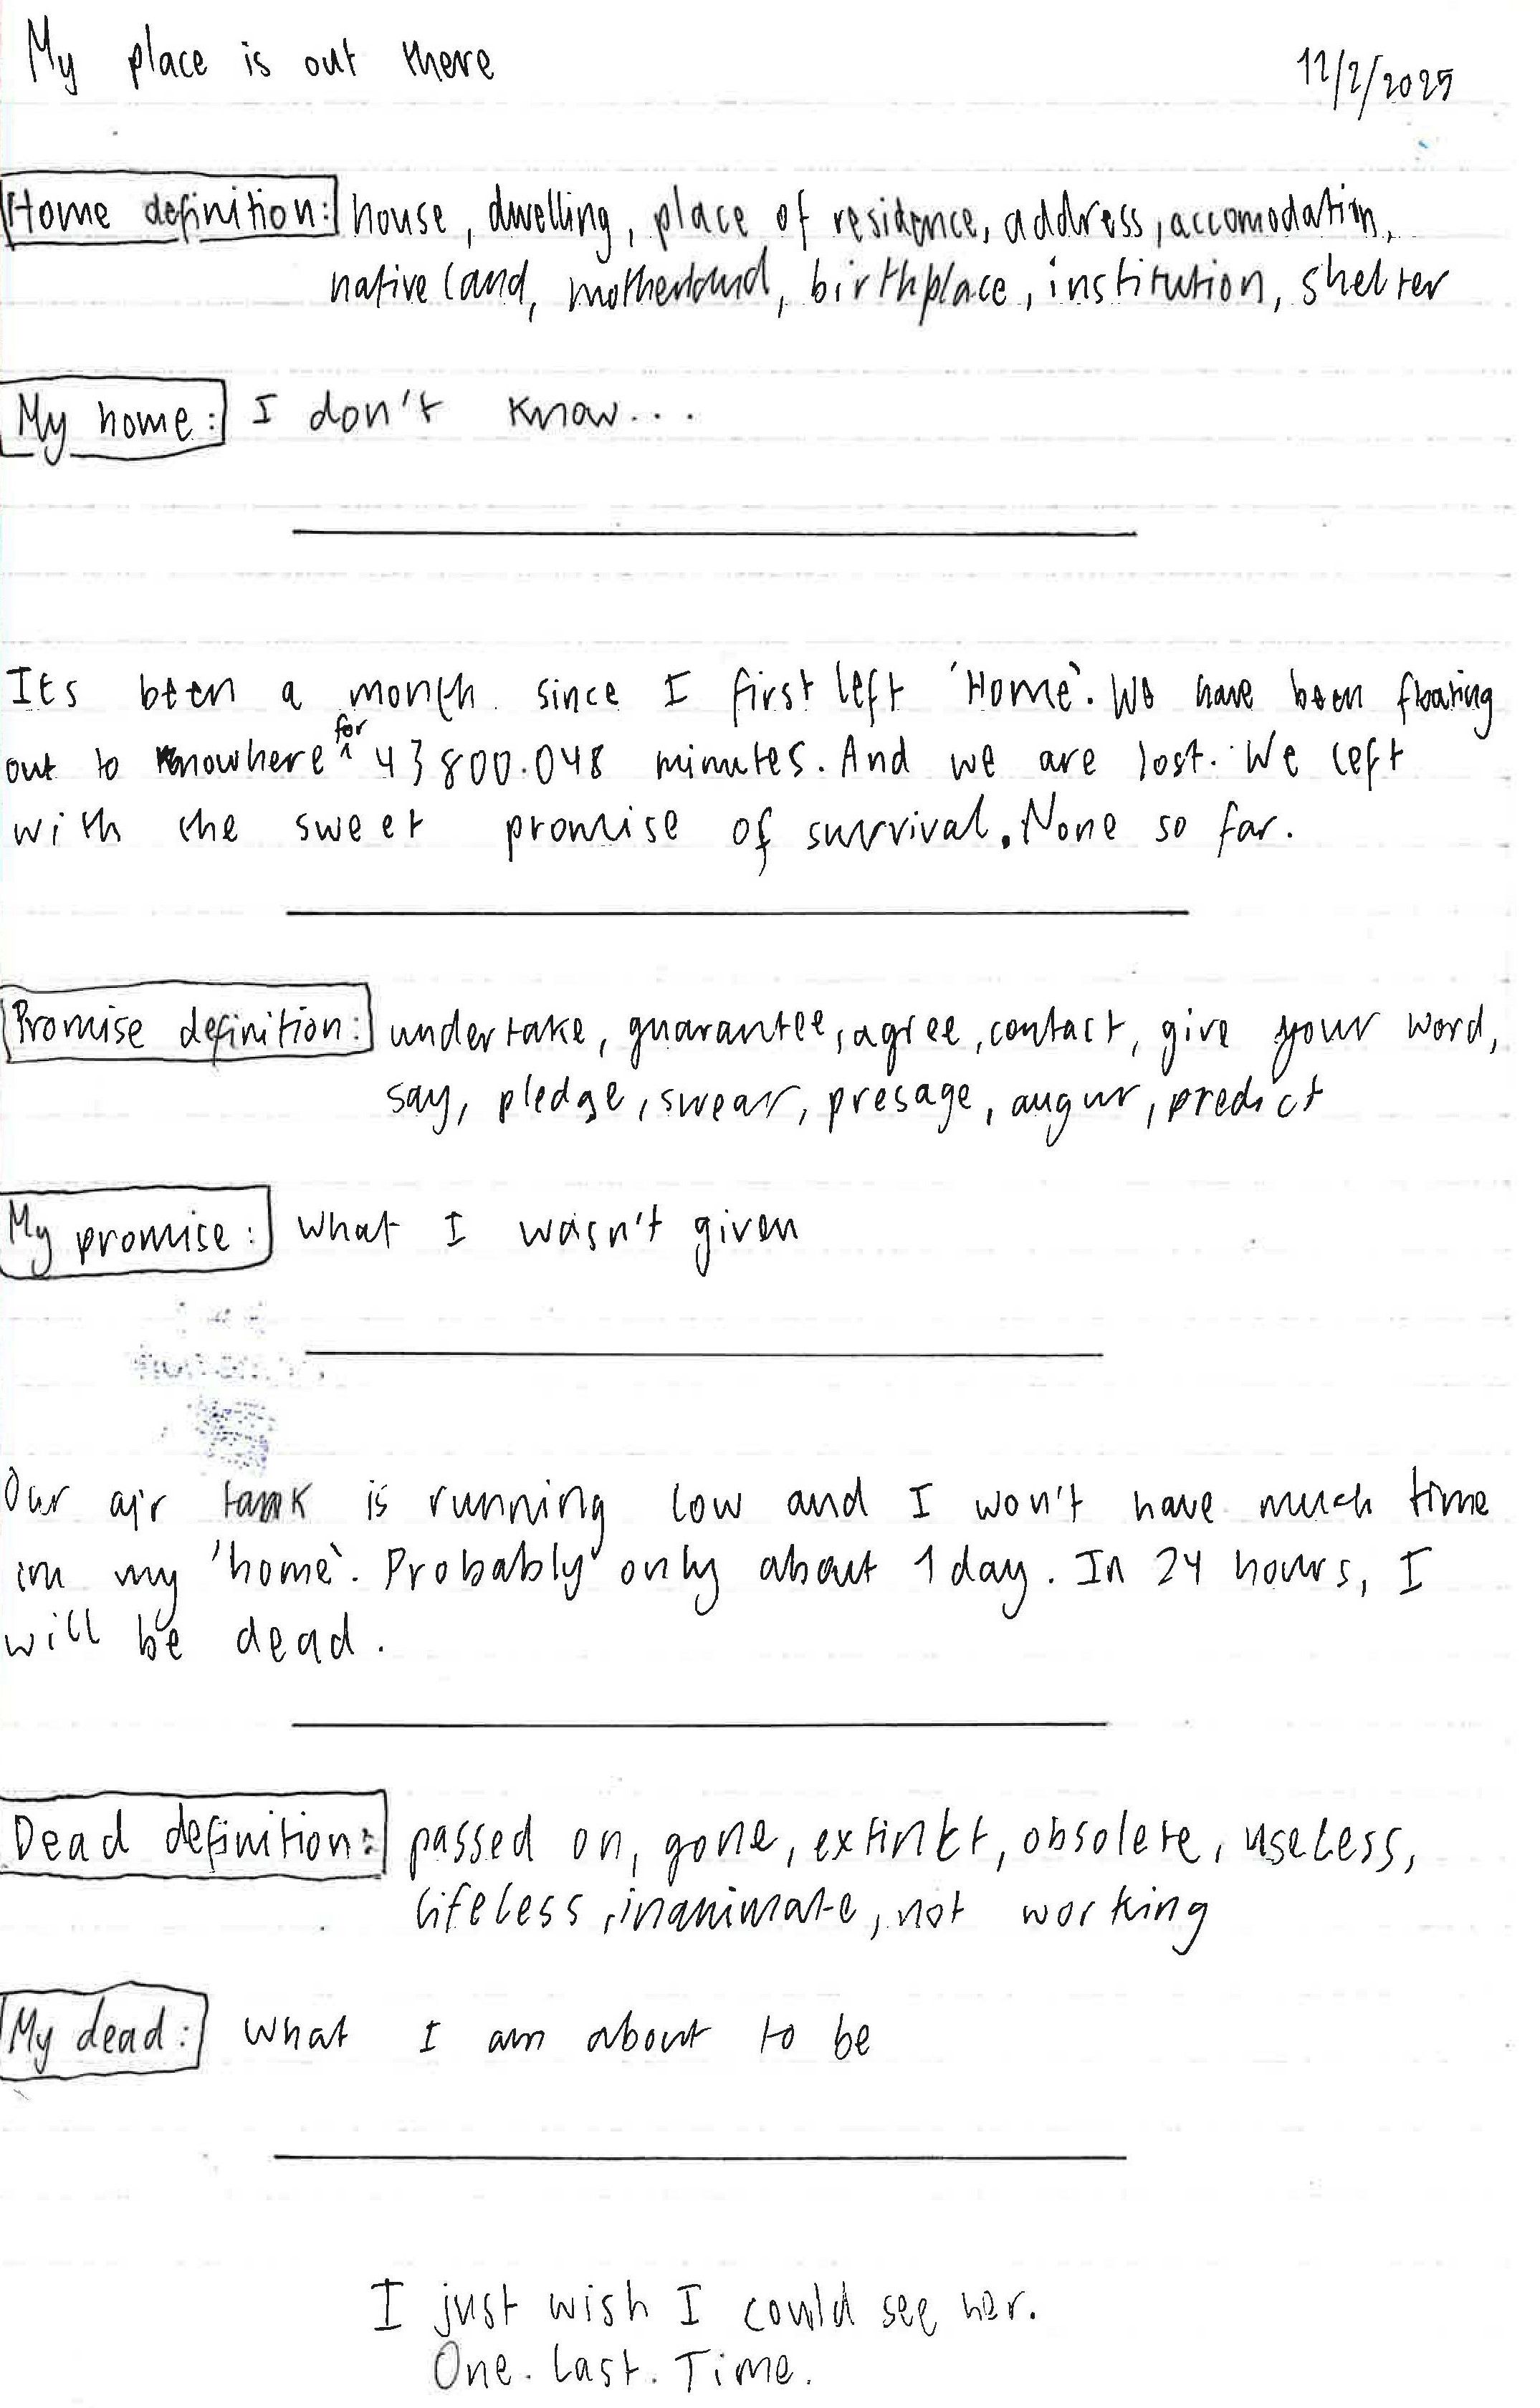 My place is out there
12/2/2025
Home definition: house, dwelling, place of residence, address, accomodation,
native land, motherland, birthplace, institution, shelter
My home: I don't know...
Its been a month since I first left 'Home'. We have been floating
out to nowhere for 43800.048 minutes. And we are lost. We left
with the sweet promise of survival. None so far.
Promise definition: undertake, guarantee, agree, contact, give your word,
say, pledge, swear, presage, augur, predict
My promise: What I wasn't given
Our air tank is running low and I won't have much time
in my 'home'. Probably only about 1 day. In 24 hours, I
will be dead.
Dead definition: passed on, gone, extinkt, obsolete, useless,
lifeless, inanimate, not working
My dead: What I am about to be
I just wish I could see her.
One. Last. Time.